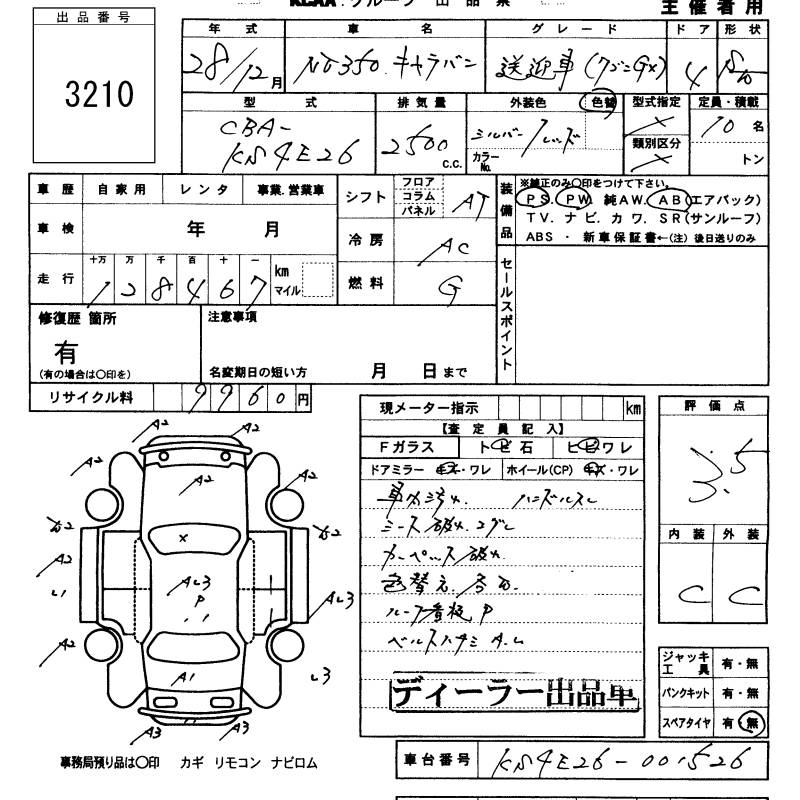 KCAA.グループ 出 品 票
主催者用
出品番号
3210
年 式 車 名 グ レ ー ド ド ア 形 状
28/12月 NV350 キャラバン 送迎車 4
型 式 排気量 外装色 色替 型式指定 定員・積載
CBA-
KS4E26 2500 c.c. シルバー/レッド 10名
カラーNo. 類別区分 トン
車 歴 自 家 用 レ ン タ 事業.営業車
車 検 年 月
走 行 十万 万 千 百 十 一
1 2 8 4 6 7 km マイル
シフト フロア コラム パネル AT
冷 房 AC
燃 料 G
装備品
※純正のみ○印をつけて下さい。
PS. PW. 純AW. AB(エアバック)
TV. ナビ. カワ. SR(サンルーフ)
ABS ・ 新車保証書←(注) 後日送りのみ
セールスポイント
修復歴 箇所
有
(有の場合は○印を)
注意事項
名変期日の短い方 月 日まで
リサイクル料 9960円
現メーター指示 km
【査 定 員 記 入】
Fガラス トビ石 ヒビワレ
ドアミラー キズ・ワレ ホイール(CP) キズ・ワレ
車内汚れ ハンドルスレ
シート破れ コゲ
カーペット破れ
色替え
ルーフ看板 P
ディーラー出品車
評 価 点
3.5
内 装 外 装
C C
ジャッキ工具 有・無
パンクキット 有・無
スペアタイヤ 有・無
A2 A2
A2 A2 A2
A2 AL3 AL3
L1 P
A2 L3
A1
A3 A3
事務局預り品は○印 カギ リモコン ナビロム
車台番号 KS4E26-001526